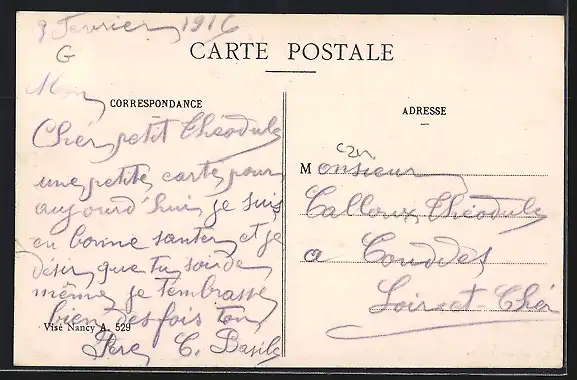 9 Fevrier 1916
G
CARTE POSTALE
Mon
CORRESPONDANCE
Chér petit Théodule
une petite carte pour
aujourd'hui je suis
en bonne santer et je
désir que tu soi de
même je t'embrasse
bien des fois ton
Visé Nancy A. 529
Pere C. Basile
ADRESSE
Monsieur
Calloux Théodule
a Couddes
Loir-et-Chér